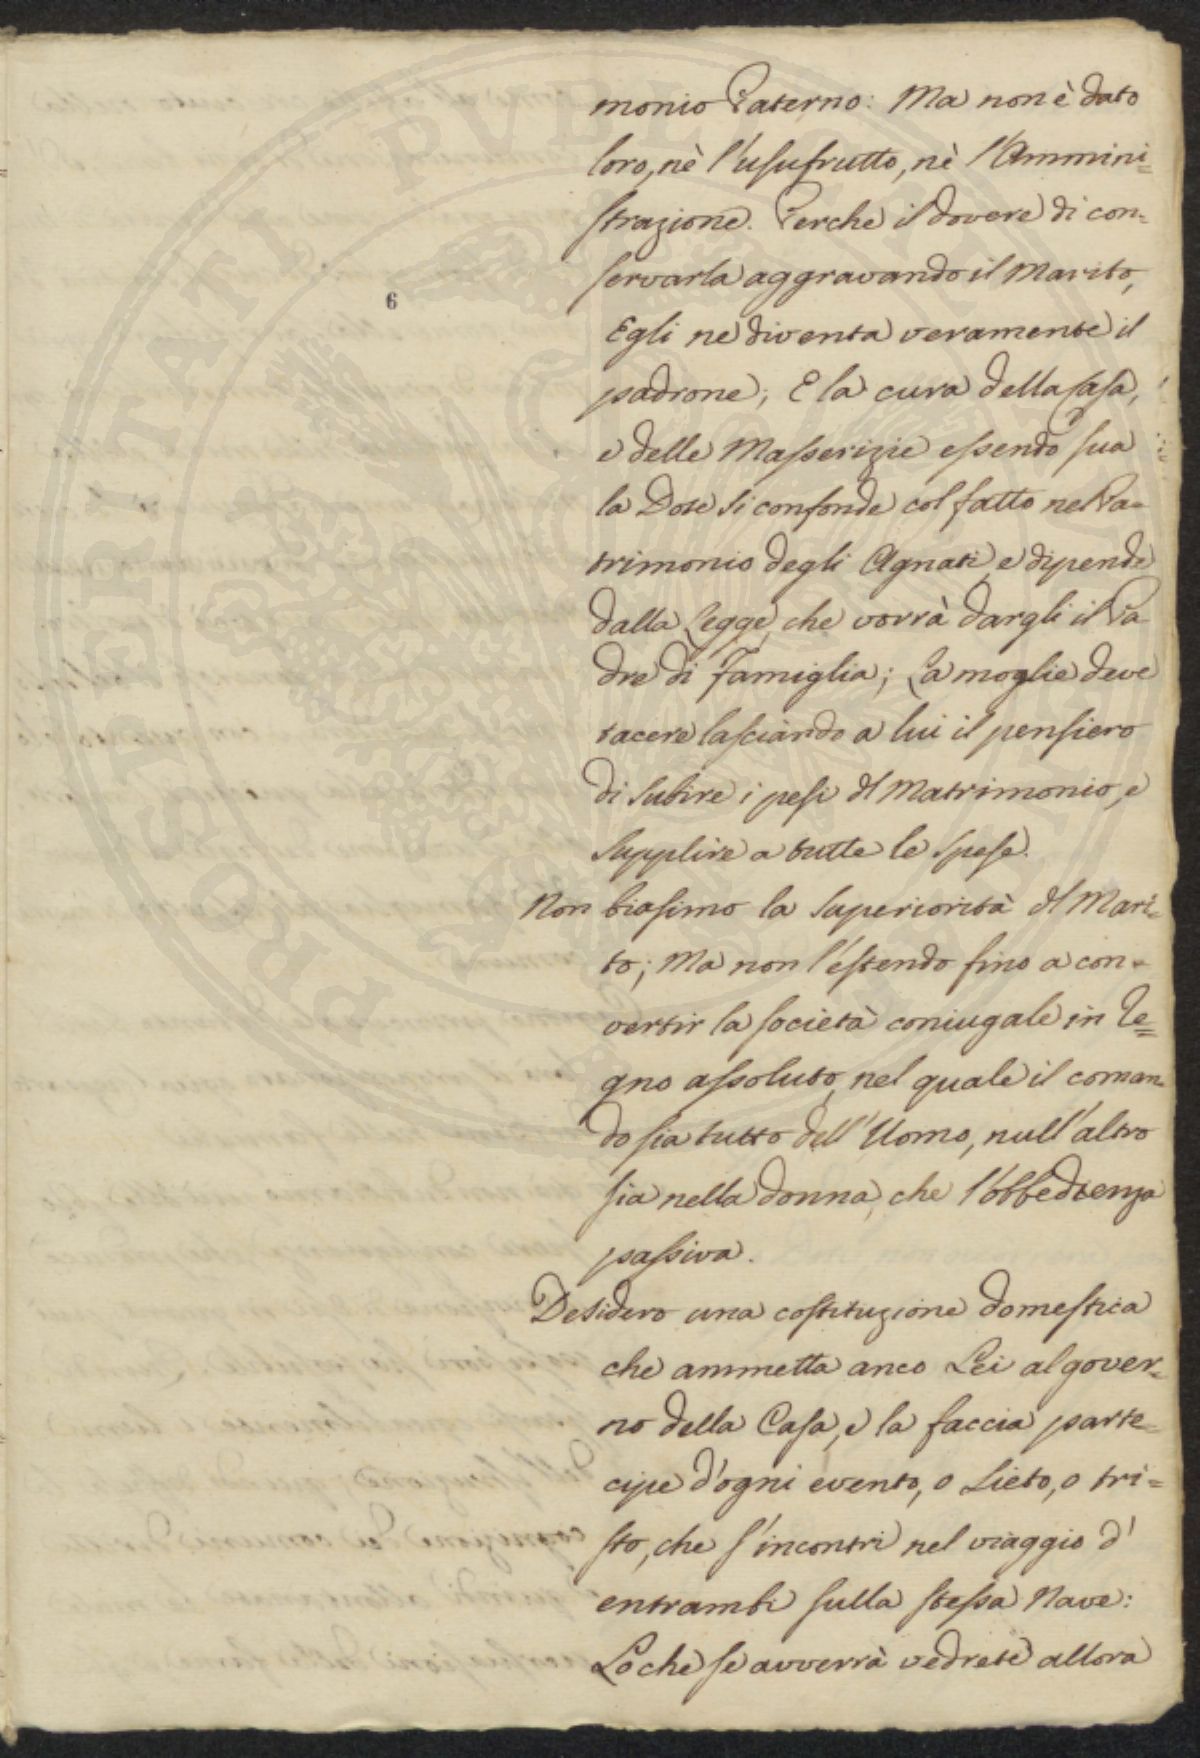 monio Paterno: Ma non è dato
loro, nè l'usufrutto, nè l'Ammini=
strazione. Perche il dovere di con=
servarla aggravando il Marito,
6
Egli ne diventa veramente il
padrone; E la cura della Casa,
e delle Masserizie essendo sua
la Dote si confonde col fatto nel Pa=
trimonio degli Agnati, e dipende
dalla Legge, che vorrà dargli il Pa
dre di Famiglia; La moglie deve
tacere lasciando a lui il pensiero
di subire i pesi dl Matrimonio, e
supplire a tutte le spese.
Non biasimo la superiorità dl Mari=
to; Ma non l'estendo fino a con=
vertir la società coniugale in Re=
gno assoluto, nel quale il coman=
do sia tutto dell'Uomo, null'altro
sia nella donna, che l'obbedienza
passiva.
Desidero una costituzione domestica
che ammetta anco Lei al gover=
no della Casa, e la faccia parte=
cipe d'ogni evento, o Lieto, o tri=
sto, che s'incontri nel viaggio d'
entrambi sulla stessa Nave:
Lo che se avverrà vedrete allora
PROSPERITATI